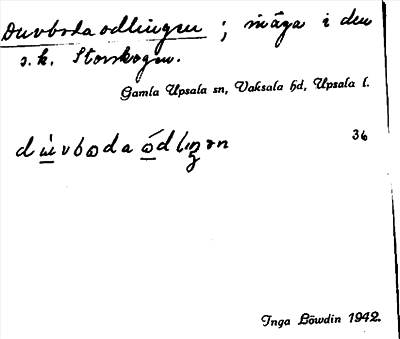 Duvbodaodlingen ; småga i den
s.k. Storskogen.
Gamla Upsala sn, Vaksala hd, Upsala l.
36
Inga Löwdin 1942.